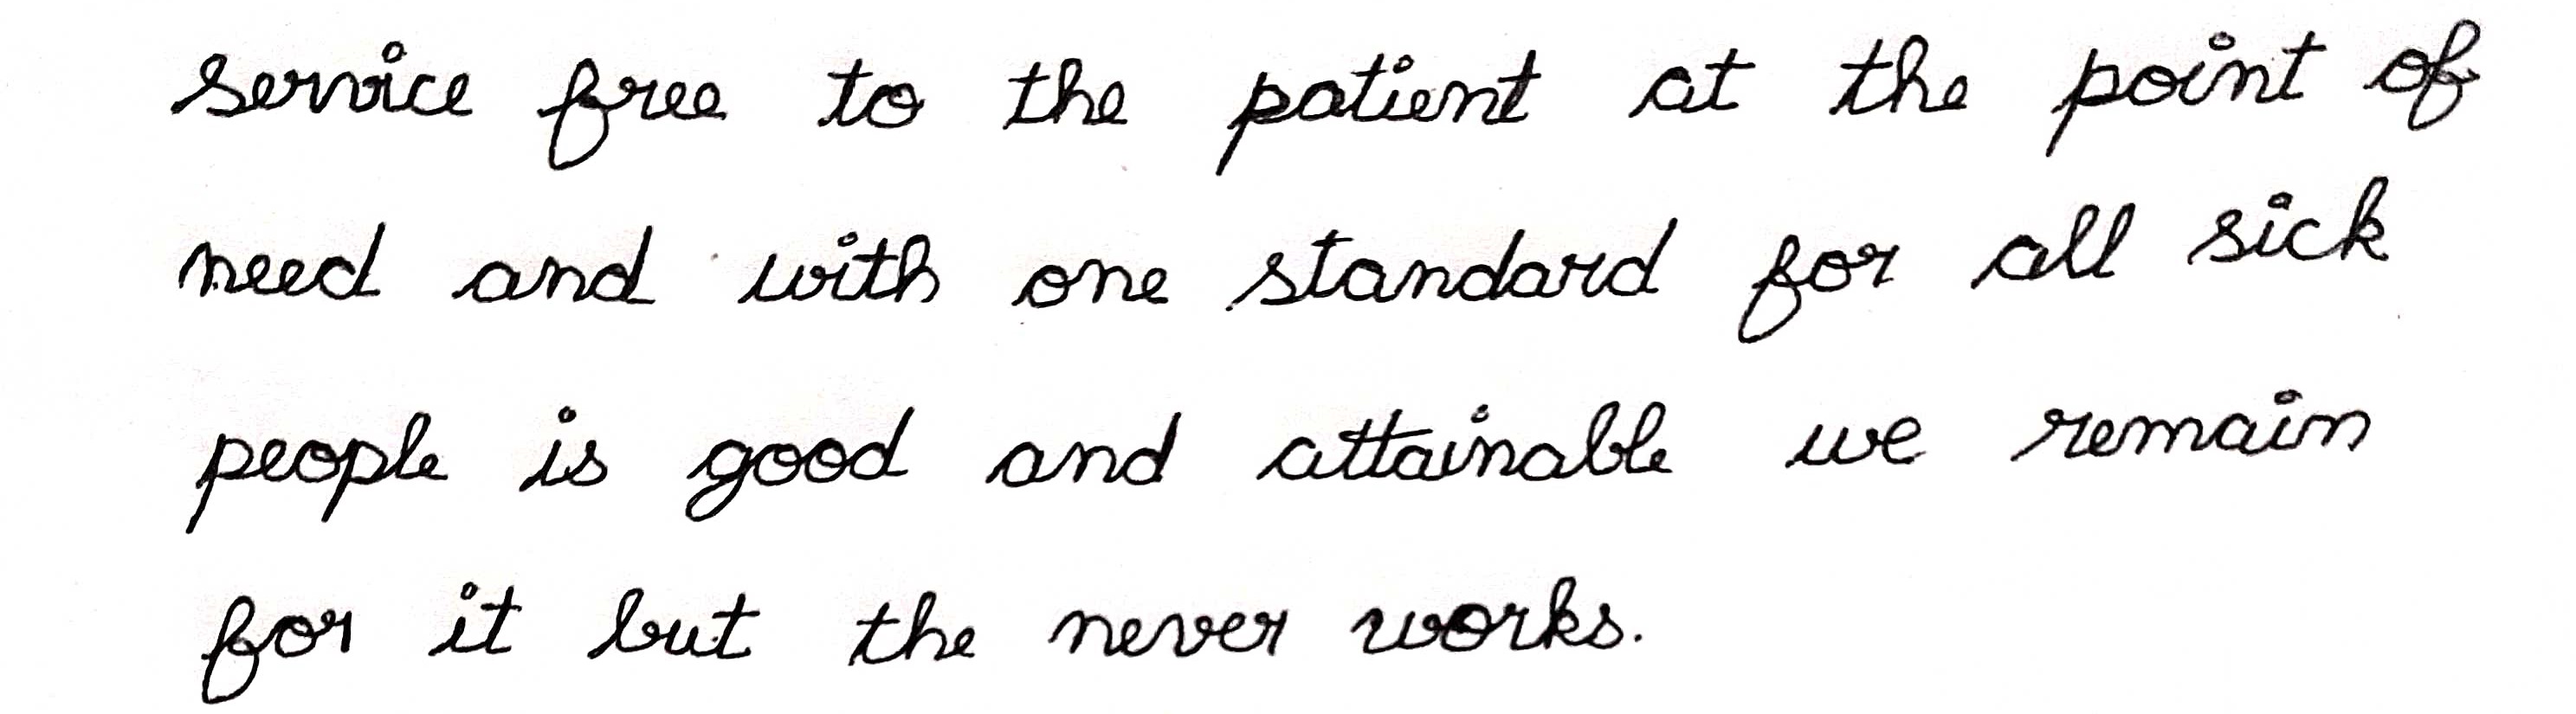 service free to the patient at the point of
need and with one standard for all sick
people is good and attainable we remain
for it but the never works.